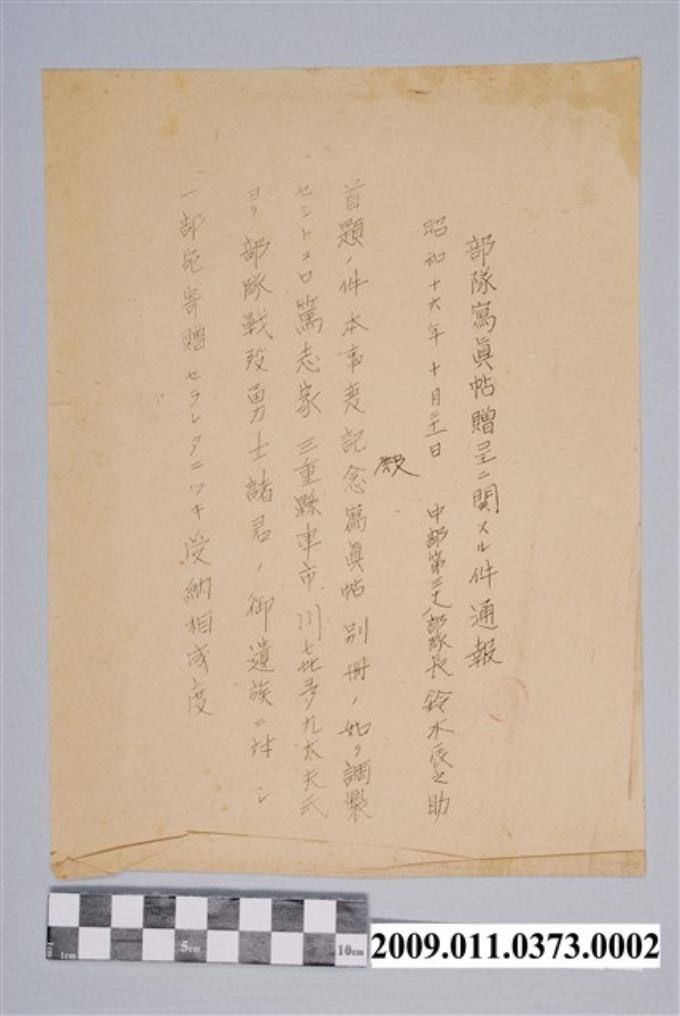 部隊寫眞帖贈呈ニ関スル件通報
昭和十六年十月三十一日 中部第三十八部隊長 鈴木辰之助
殿
首題ノ件本事変記念寫眞帖別冊ノ如ク調製
セシトコロ篤志家三重縣津市川喜多久太夫氏
ヨリ部隊戦歿勇士諸君ノ御遺族ニ対シ
一部宛寄贈セラレタニツキ受納相成度
1cm
5cm
10cm
2009.011.0373.0002